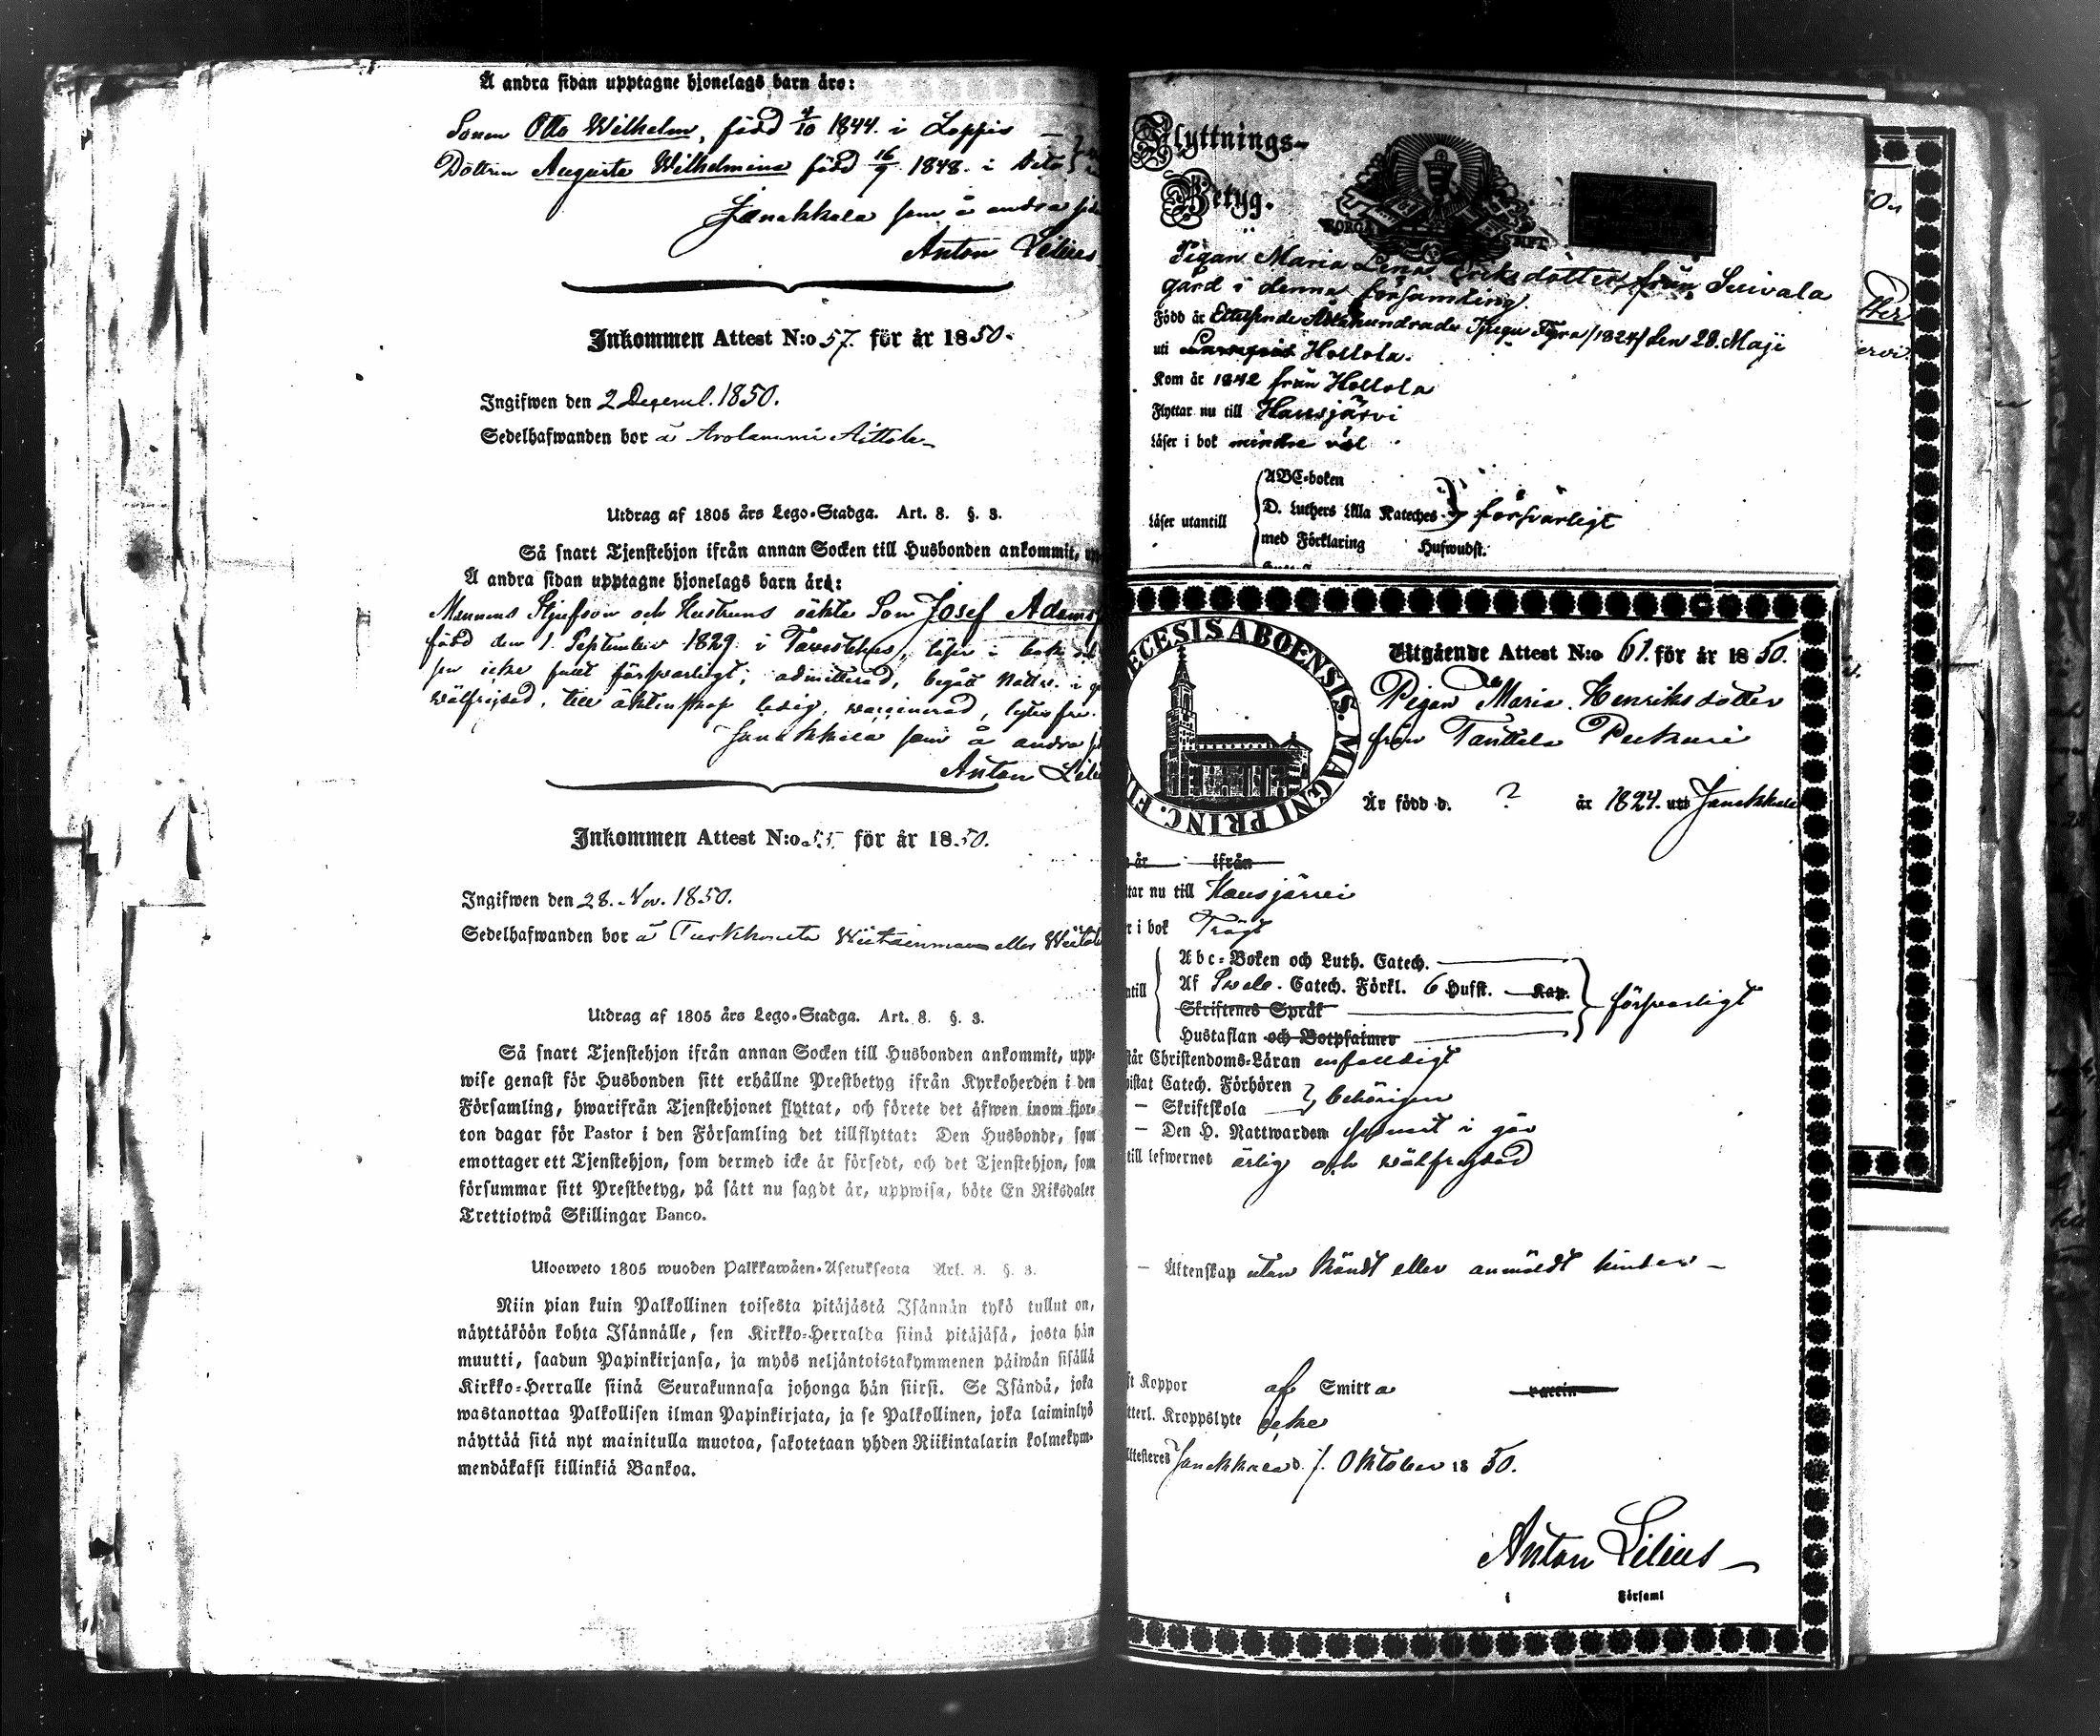 Å andra sidan upptagne hjonelags barn äro:
Sonen Otto Wilhelm, född 4/10 1844. i Loppis
Dottren Augusta Wilhelmina född 16/9 1848. i dito
Janakkala som å andra sidan
Anton Lilius
Inkommen Attest N:o 57. för år 1850.
Ingifwen den 2 Decemb. 1850.
Sedelhafwanden bor å Arolammi Aittola
Utdrag af 1805 års Lego-Stadga. Art. 8. §. 3.
Så snart Tjenstehjon ifrån annan Socken till Husbonden ankommit,
Å andra sidan upptagne hjonelags barn äro:
Mannens Stjufson och Hustruns äkta Son Josef Adams
född den 1. September 1829. i Tavastehus, läser i bok
icke fullt försvarligt, admitterad, begått Nattv. i
wälfrejdad, till äktenskap ledig, vaccinerad, lytesfri.
Janakkala som å andra
Anton Lilius
Inkommen Attest N:o 55 för år 1850.
Ingifwen den 28. Nov. 1850.
Sedelhafwanden bor å Turkhauta eller
Utdrag af 1805 års Lego-Stadga. Art. 8. §. 3.
Så snart Tjenstehjon ifrån annan Socken till Husbonden ankommit, upp-
wise genast för Husbonden sitt erhållne Prestbetyg ifrån Kyrkoherden i den
Församling, hwarifrån Tjenstehjonet flyttat, och förete det äfwen inom fjor-
ton dagar för Pastor i den Församling det tillflyttat: Den Husbonde, som
emottager ett Tjenstehjon, som dermed icke är försedt, och det Tjenstehjon, som
försummar sitt Prestbetyg, på sätt nu sagdt är, uppwisa, böte En Riksdaler
Trettiotwå Skillingar Banco.
Ulosweto 1805 wuoden Palkkawäen-Asetuksesta Art. 8. §. 3.
Niin pian kuin Palkollinen toisesta pitäjästä Isännän tykö tullut on,
näyttäköön kohta Isännälle, sen Kirkko-Herralda siinä pitäjäsä, josta hän
muutti, saadun Papinkirjansa, ja myös neljäntoistakymmenen päiwän sisällä
Kirkko-Herralle siinä Seurakunnasa johonga hän siirsi. Se Isändä, joka
wastanottaa Palkollisen ilman Papinkirjata, ja se Palkollinen, joka laiminlyö
näyttää sitä nyt mainitulla muotoa, sakotetaan yhden Riikintalarin kolmekym-
mendäkaksi killinkiä Bankoa.
Flyttnings-
Betyg.
Pigan Maria Lena Eriksdotter, från Suivala
gård i denna församling
Född år Ettusende Åttahundrade Tjugu Fyra/1824/ den 28. Maji
uti Hollola.
Kom år 1842 från Hollola
Flyttar nu till Hausjärvi
Läser i bok mindre väl
Läser utantill
ABC-boken
D. Luthers Lilla Kateches försvarligt
med Förklaring Hufwudst.
DIOECESIS ABOENSIS. MAGNI PRINC.
Utgående Attest N:o 61. för år 1850.
Pigan Maria Henriksdotter
från Tanttala Pukari
År född d. ? år 1824. uti Janakkala
år ifrån
tar nu till Hausjärvi
r i bok Trögt
ntill
Abc-Boken och Luth. Catech.
Af Svebe. Catech. Förkl. 6 Hufst. Kap.
Skriftenes Språk försvarligt
Hustaflan och Botpsalmer
står Christendoms-Läran enfaldigt
wistat Catech. Förhören
– Skriftskola behörigen
– Den H. Nattwarden senast i går
till lefwernet ärlig och wälfrejdad
– Äktenskap utan kändt eller anmäldt hinder
Koppor af Smitta vaccin
tterl. Kroppslyte icke
Attesteres Janakkala d. 7. Oktober 1850.
Anton Lilius
i Församl